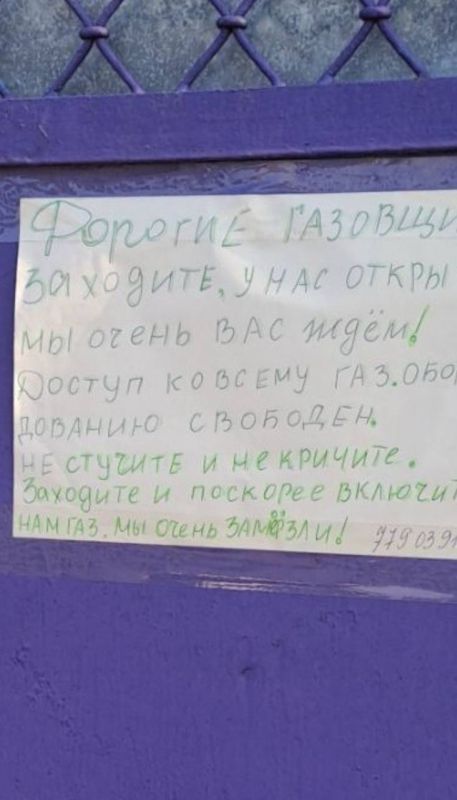 Дорогие ГАЗОВЩИ
ЗАХОДИТЕ, У НАС ОТКРЫ
МЫ ОЧЕНЬ ВАС ЖДЁМ!
ДОСТУП КО ВСЕМУ ГАЗ.ОБО
ДОВАНИЮ СВОБОДЕН.
НЕ СТУЧИТЕ И НЕ КРИЧИТЕ.
Заходите и поскорее включи
НАМ ГАЗ. МЫ ОЧЕНЬ ЗАМЁЗЛИ! 779 03 9